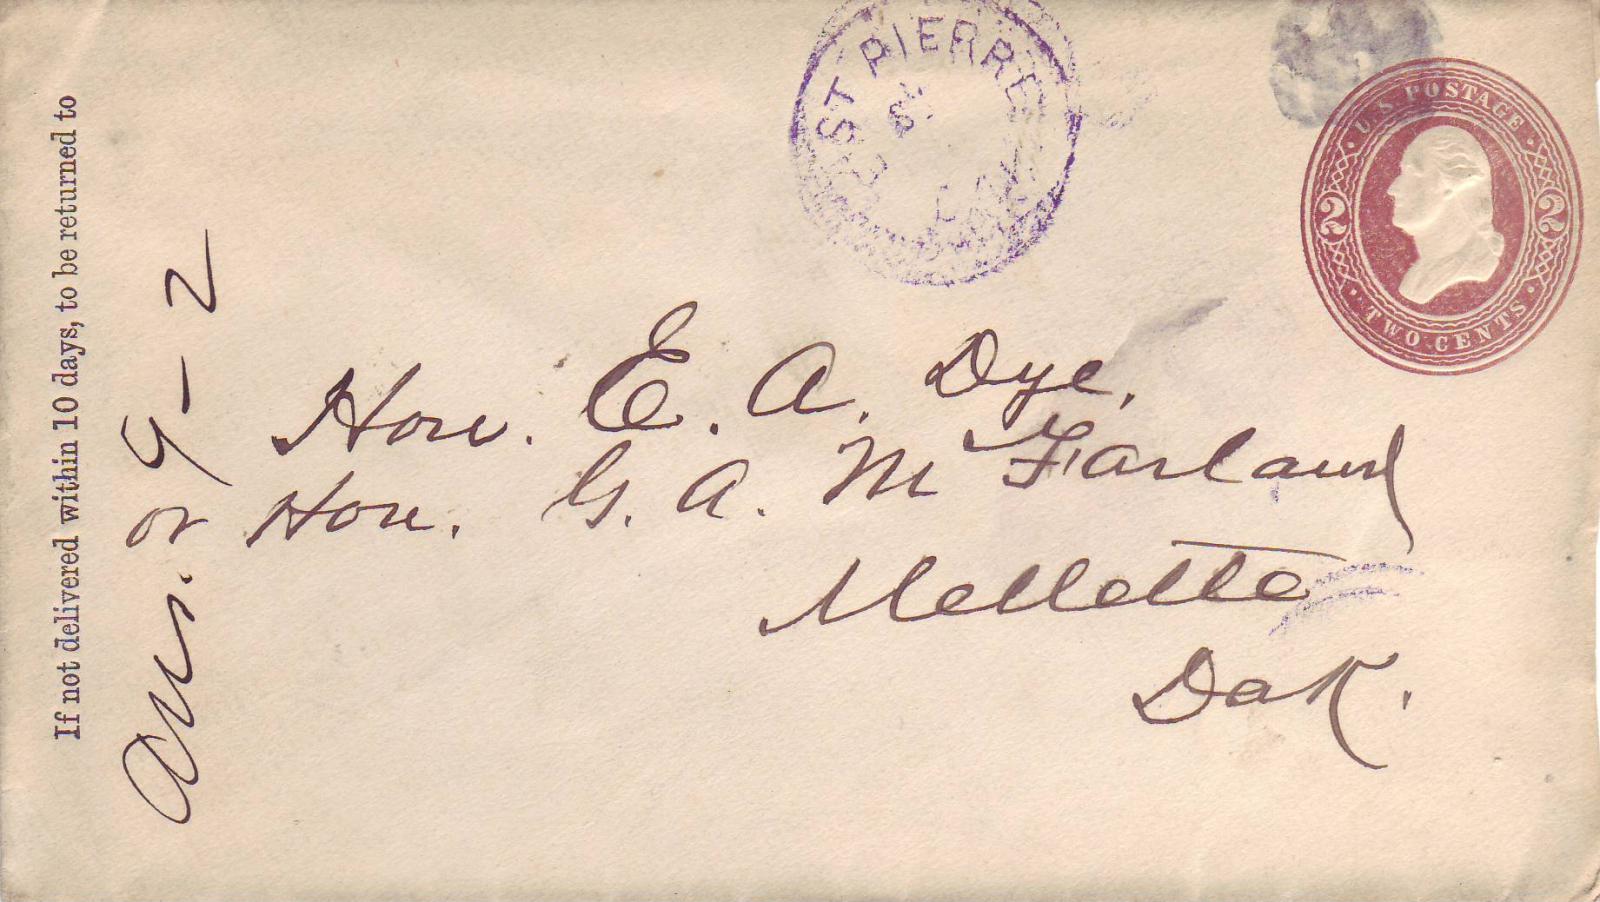 If not delivered within 10 days, to be returned to
Ans. 9-2
ST PIERRE
U.S. POSTAGE
2 2
TWO CENTS
Hon. E. A. Dye,
or Hon. G. A. McFarland
Mellette
Dak.